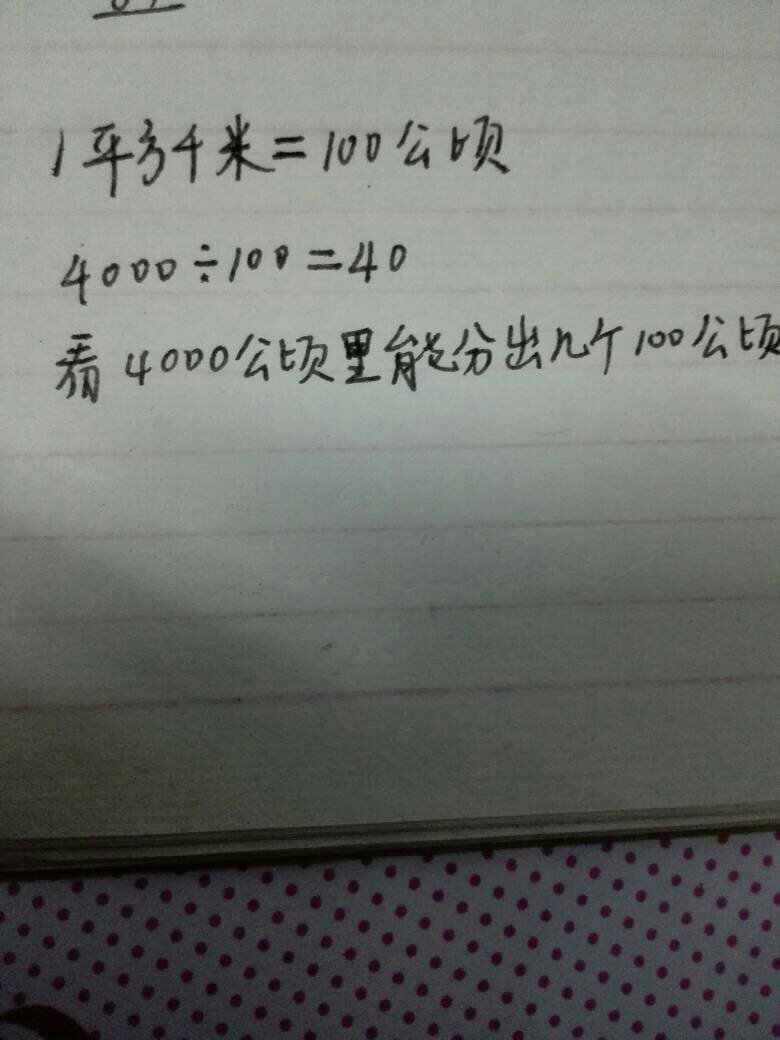 1平方千米=100公顷
4000÷100=40
看4000公顷里能分出几个100公顷